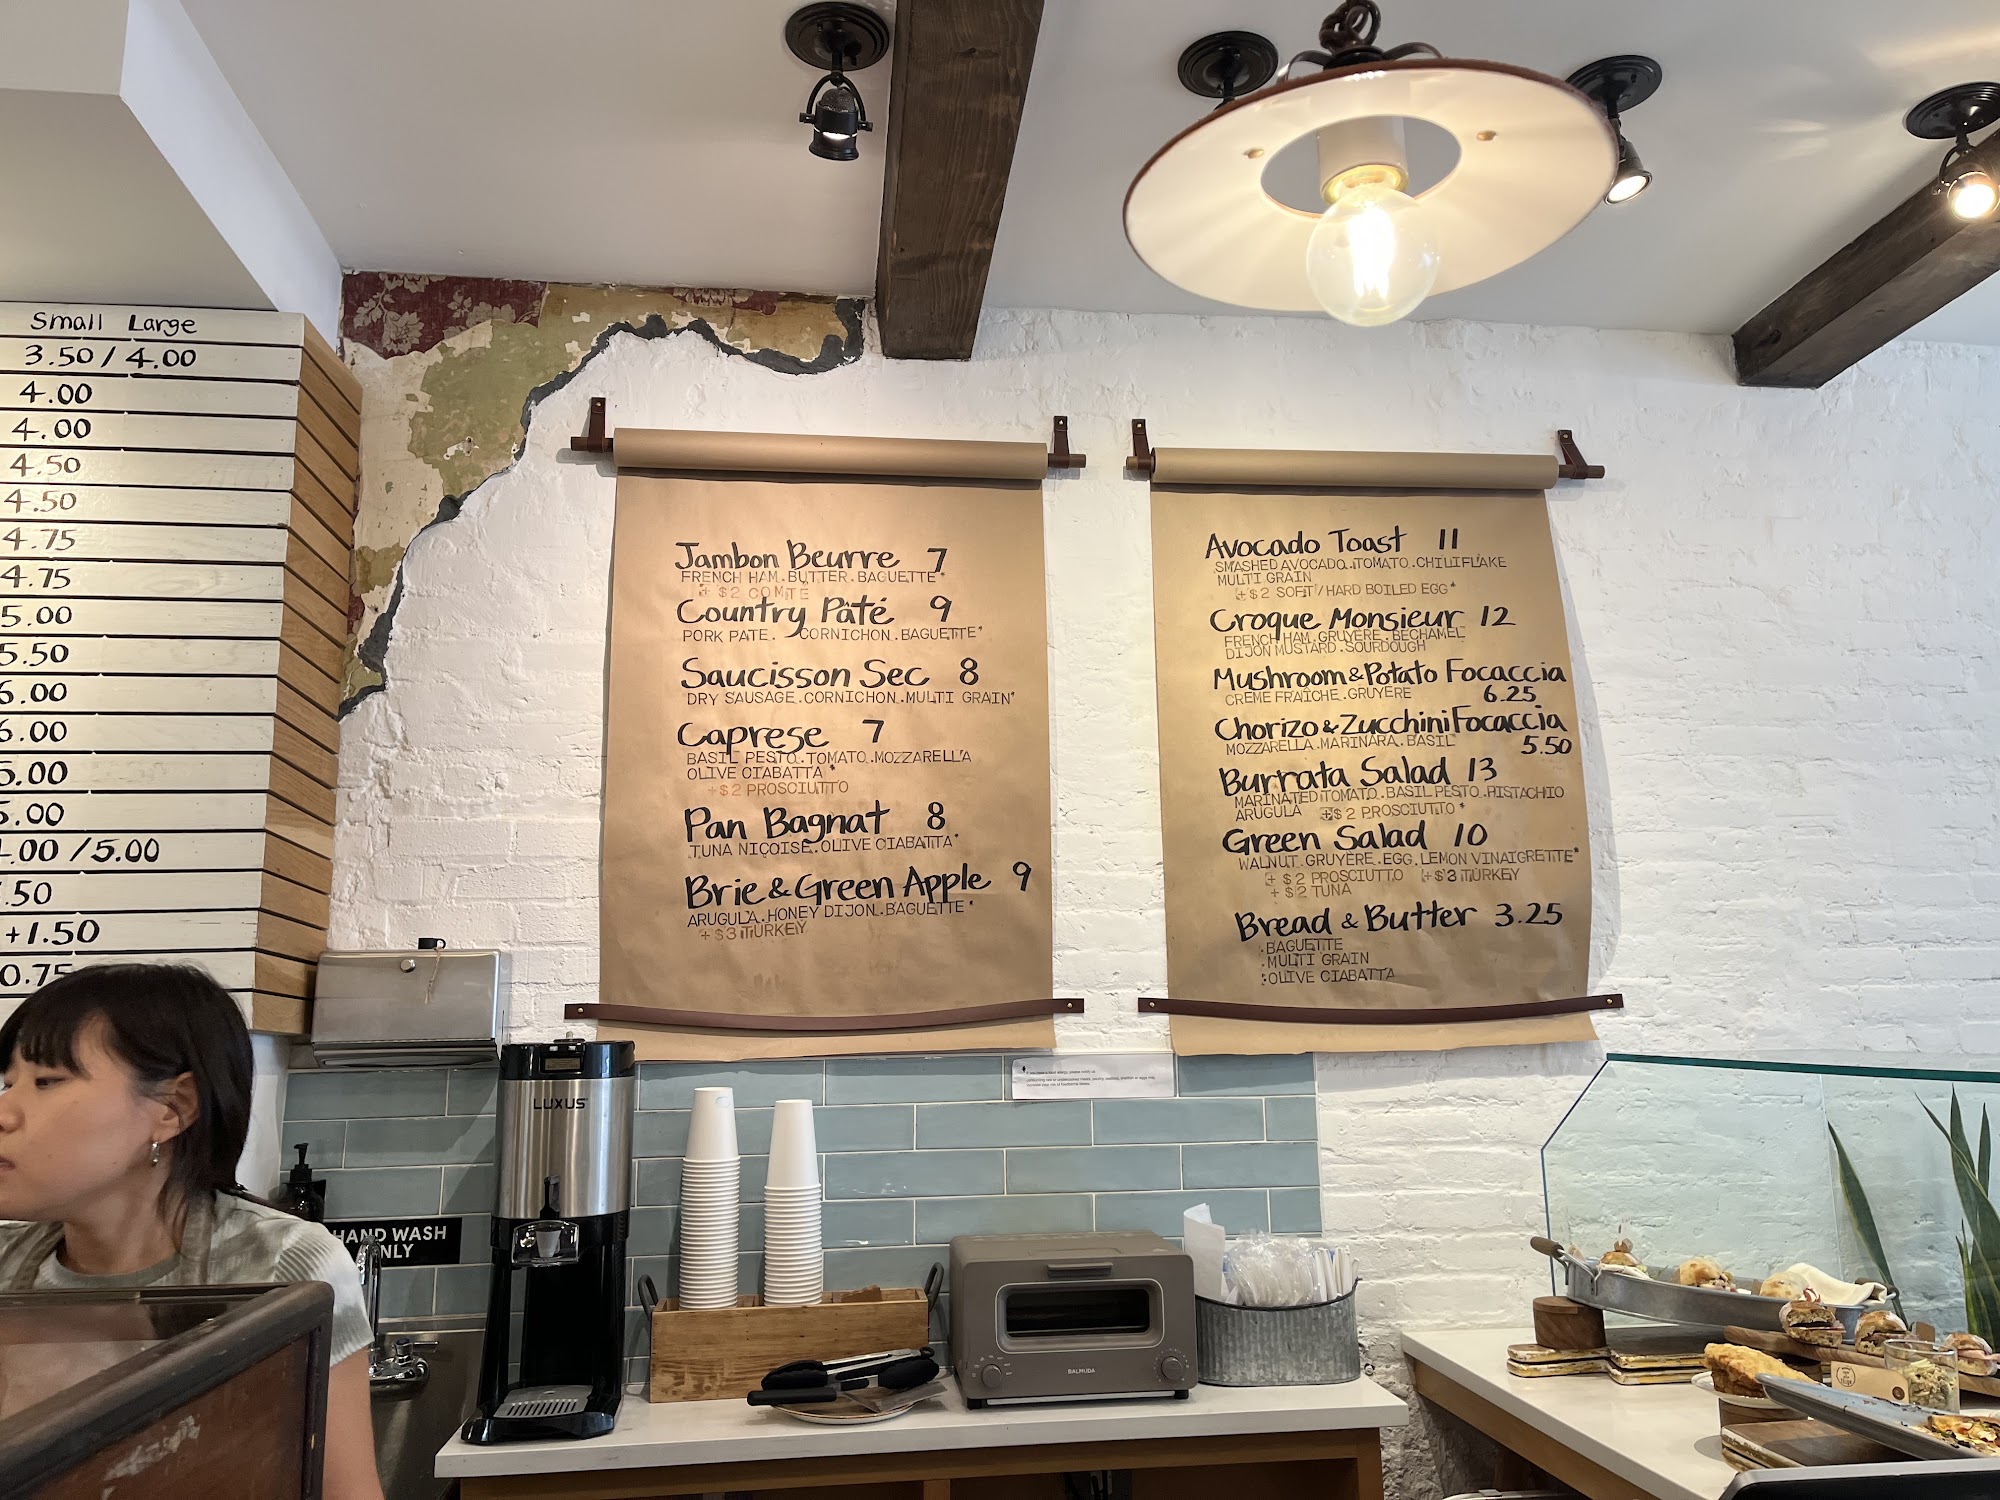 Small Large
3.50 / 4.00
4.00
4.00
4.50
4.50
4.75
4.75
5.00
5.50
6.00
6.00
5.00
.00 / 5.00
.50
+1.50
0.75
Jambon Beurre 7
FRENCH HAM.BUTTER.BAGUETTE*
+$2 COMTÉ
Country Pâté 9
PORK PATE. CORNICHON.BAGUETTE*
Saucisson Sec 8
DRY SAUSAGE.CORNICHON.MULTI GRAIN*
Caprese 7
BASIL PESTO.TOMATO.MOZZARELLA
OLIVE CIABATTA*
+$2 PROSCIUTTO
Pan Bagnat 8
TUNA NIÇOISE.OLIVE CIABATTA*
Brie & Green Apple 9
ARUGULA.HONEY DIJON.BAGUETTE*
+$3 TURKEY
Avocado Toast 11
SMASHED AVOCADO.TOMATO.CHILIFLAKE
MULTI GRAIN
+$2 SOFT/HARD BOILED EGG*
Croque Monsieur 12
FRENCH HAM.GRUYERE.BECHAMEL
DIJON MUSTARD.SOURDOUGH
Mushroom & Potato Focaccia
CREME FRAÎCHE.GRUYERE 6.25
Chorizo & Zucchini Focaccia
MOZZARELLA.MARINARA.BASIL 5.50
Burrata Salad 13
MARINATED TOMATO.BASIL PESTO.PISTACHIO
ARUGULA +$2 PROSCIUTTO*
Green Salad 10
WALNUT.GRUYERE.EGG.LEMON VINAIGRETTE*
+$2 PROSCIUTTO +$3 TURKEY
+$2 TUNA
Bread & Butter 3.25
.BAGUETTE
.MULTI GRAIN
.OLIVE CIABATTA
LUXUS
HAND WASH
ONLY
BALMUDA